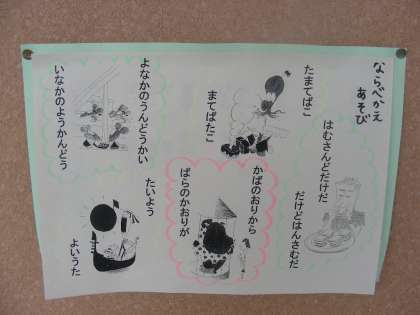 ならべかえ
あそび
はむさんどだけだ
だけどはんさむだ
たまてばこ
まてばたこ
かばのおりから
ばらのかおりが
よなかのうんどうかい
いなかのようかんどう
たいよう
よいうた